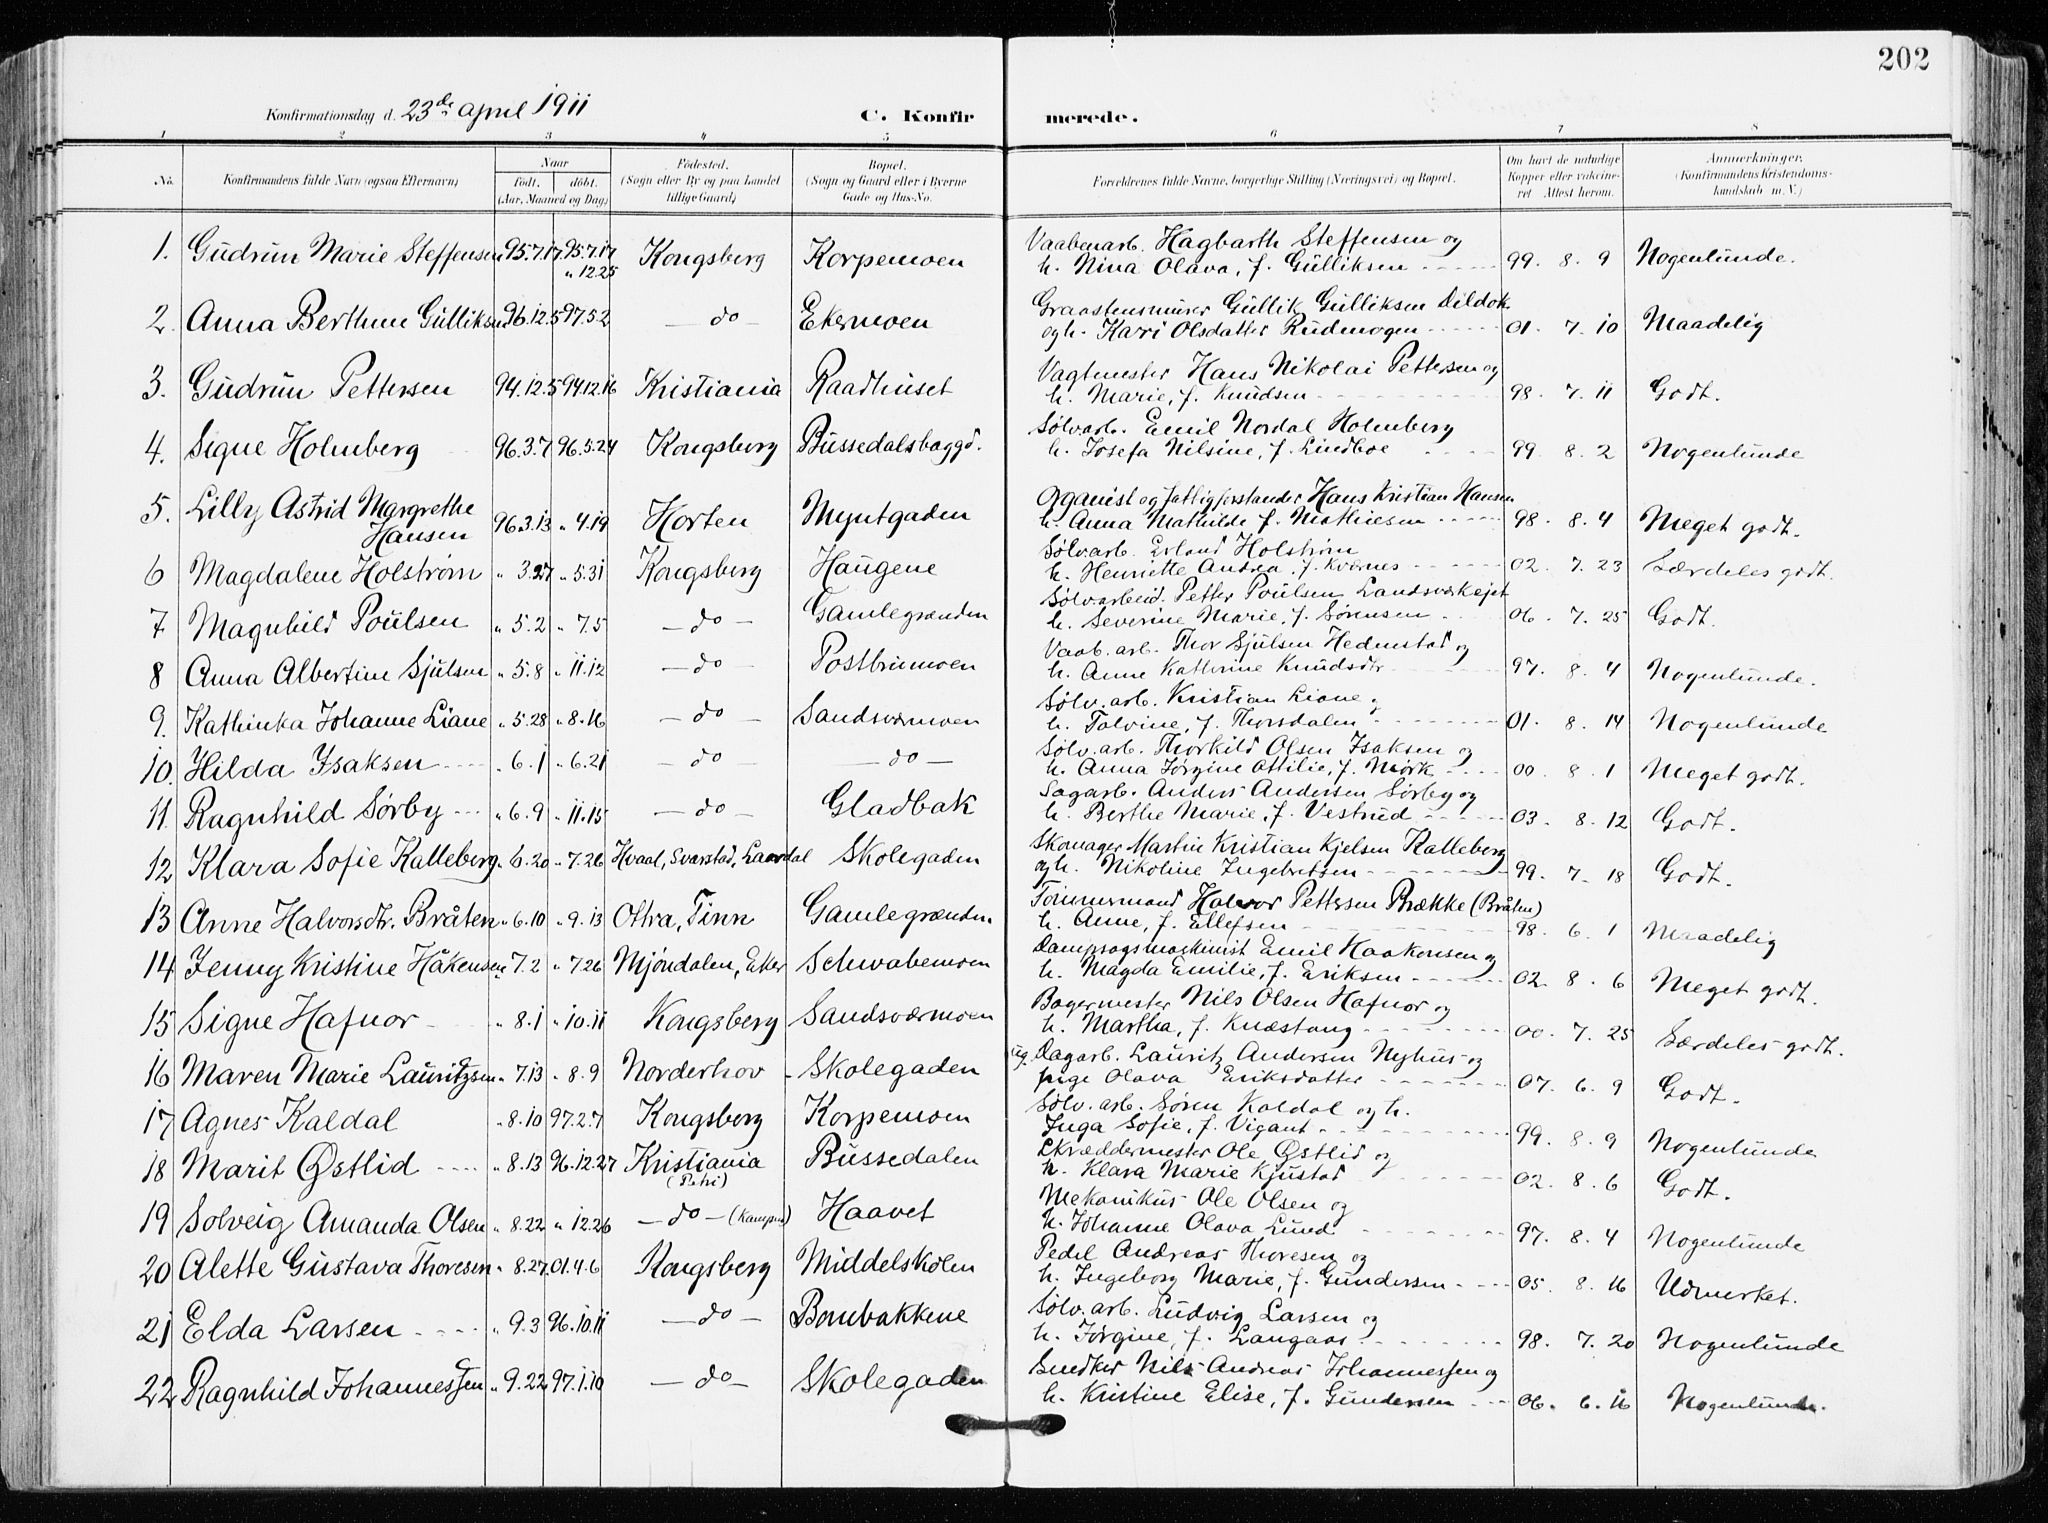 202
Konfirmationsdag d. 23de april 1911 C. Konfirmerede.
1 2 3 4 5 6 7 8
No. Konfirmandens fulde Navn (ogsaa Efternavn) Naar født. døbt. (Aar, Maaned og Dag) Fødested. (Sogn eller By og paa Landet tillige Gaard) Bopæl. (Sogn og Gaard eller i Byerne Gade og Hus-No. Forældrenes fulde Navne, borgerlige Stilling (Næringsvei) og Bopæl. Om havt de naturlige Kopper eller vakcineret Attest herom. Anmærkninger. (Konfirmandens Kristendomskundskab m. V.)
1. Gudrun Marie Steffensen 95.7.17 95.7.17 Kongsberg Korpemoen Vaabenarb. Hagbarth Steffensen og
" 12.25 h. Nina Olava, f. Gulliksen 99. 8. 9 Nogenlunde.
2. Anna Berthine Gulliksen 96.12.5 97.5.2 — do — Ekermoen Graastensmurer Gullik Gulliksen
og h. Kari Olsdatter Rudmogen 01. 7. 10 Maadelig
3. Gudrun Pettersen 94.12.5 94.12.16 Kristiania Raadhuset Vagtmester Hans Nikolai Pettersen og
h. Marie, f. Knudsen 98. 7. 11 Godt.
4. Signe Holmberg 96.3.7 96.5.24 Kongsberg Bussedalsbaggd. Sølvarb. Emil Nordal Holmberg
h. Josefa Nilsine, f. Lindboe 99. 8. 2 Nogenlunde
5. Lilly Astrid Margrethe Hansen 96.3.13 " 4.19 Horten Myntgaden Organist og fattigforstander Hans Kristian Hansen
h. Anna Mathilde f. Mathiesen 98. 8. 4 Meget godt.
6 Magdalene Holstrøm " 3.27 " 5.31 Kongsberg Haugene Sølvarb. Erland Holstrøm
h. Henriette Andrea, f. Kvernes 02. 7. 23 Særdeles godt.
7 Magnhild Poulsen " 5.2 " 7.5 — do — Gamlegrænden Sølvarbeid. Petter Poulsen Landsværkejet
h. Severine Marie, f. Sørensen 06. 7. 25 Godt.
8 Anna Albertine Sjulsen " 5.8 " 11.12 — do — Postbrumoen Vaab. arb. Thor Sjulsen Hedenstad og
h. Anne Katherine Knudsdtr 97. 8. 4 Nogenlunde.
9. Kathinka Johanne Liane " 5.28 " 8.16 — do — Sandsværmoen Sølv. arb. Kristian Liane,
h. Talvine, f. Thorsdalen 01. 8. 14 Nogenlunde
10. Hilda Isaksen " 6.1 " 6.21 — do — — do — Sølv. arb. Thorkild Olsen Isaksen og
h. Anna Jørgine Ottilie, f. Mørk 00. 8. 1 Meget godt.
11. Ragnhild Sørby " 6.9 " 11.15 — do — Gladbak Sagarb. Anders Andersen Sørby og
h. Berthe Marie, f. Vestrud 03. 8. 12 Godt.
12 Klara Sofie Kalleberg " 6.20 " 7.26 Hvaal, Svarstad, Laardal Skolegaden Skomager Martin Kristian Kjelsen Kalleberg
og h. Nikoline Ingebretsen 99. 7. 18 Godt.
13 Anne Halvorsdtr. Bråten " 6.10 " 9.13 Ottra, Tinn Gamlegrænden Tømmermand Halvor Pettersen Brække (Bråten)
h. Anne, f. Ellefsen 98. 6. 1 Maadelig
14 Jenny Kristine Håkensen " 7.2 " 7.26 Mjøndalen, Eker Schwabemoen Dampsagsmaskinist Emil Haakonsen og
h. Magda Emilie, f. Eriksen 02. 8. 6 Meget godt.
15 Signe Hafnor " 8.1 " 10.11 Kongsberg Sandsværmoen Bagermester Nils Olsen Hafnor og
h. Martha, f. Knæstang 00. 7. 25 Særdeles godt.
16 Maren Marie Lauritzsen " 7.13 " 8.9 Norderhov Skolegaden Ug. Dagarb. Lauritz Andersen Nyhus og
pige Olava Eriksdatter 07. 6. 9 Godt.
17 Agnes Kaldal " 8.10 97.2.7 Kongsberg Korpemoen Sølv. arb. Søren Kaldal og h.
Inga Sofie, f. Vigant 99. 8. 9 Nogenlunde
18 Marit Østlid " 8.13 96.12.27 Kristiania (Petri) Bussedalen Skræddermester Ole Østlid og
h. Klara Marie Kjustad 02. 8. 6 Godt.
19 Solveig Amanda Olsen " 8.22 " 12.26 — do — (Kampen) Haavet Mekanikus Ole Olsen og
h. Johanne Olava Lund 97. 8. 4 Nogenlunde
20 Alette Gustava Thoresen " 8.27 01.4.6 Kongsberg Middelskolen Pedel Andreas Thoresen og
h. Ingeborg Marie, f. Gundersen 05. 8. 16 Udmerket.
21 Elda Larsen " 9.3 96.10.11 — do — Bombakkene Sølv. arb. Ludvig Larsen og
h. Jørgine, f. Langaas 98. 7. 20 Nogenlunde
22 Ragnhild Johannessen " 9.22 97.1.10 — do — Skolegaden Snedker Nils Andreas Johannessen og
h. Kristine Elise, f. Gundersen 06. 6. 16 Nogenlunde.